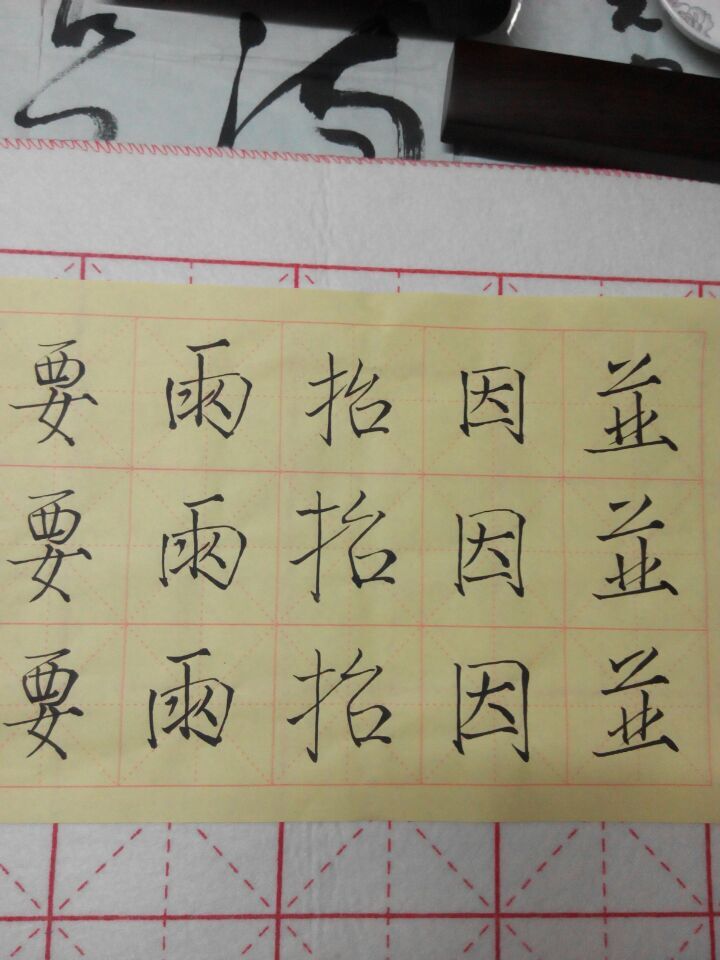 要雨抬因並
要雨抬因並
要雨抬因並